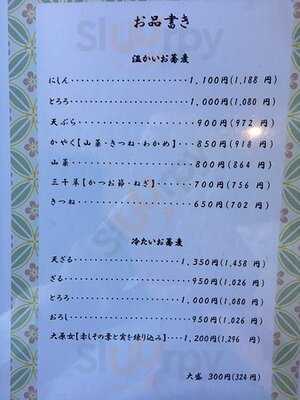 お品書き
温かいお蕎麦
にしん・・・・・・・・・・・・・・・・・・1,100円(1,188 円)
とろろ・・・・・・・・・・・・・・・・・・1,000円(1,080 円)
天ぷら・・・・・・・・・・・・・・・・・・900円(972 円)
かやく【山菜・きつね・わかめ】・・・850円(918 円)
山菜・・・・・・・・・・・・・・・・・・800円(864 円)
三千草【かつお節・ねぎ】・・・・・700円(756 円)
きつね・・・・・・・・・・・・・・・・・・650円(702 円)
冷たいお蕎麦
天ざる・・・・・・・・・・・・・・・・1,350円(1,458 円)
ざる・・・・・・・・・・・・・・・・・・950円(1,026 円)
とろろ・・・・・・・・・・・・・・・・1,000円(1,080 円)
おろし・・・・・・・・・・・・・・・・・950円(1,026 円)
大原女【赤しその葉と実を練り込み】・・・・1,200円(1,296 円)
大盛 300円(324円)